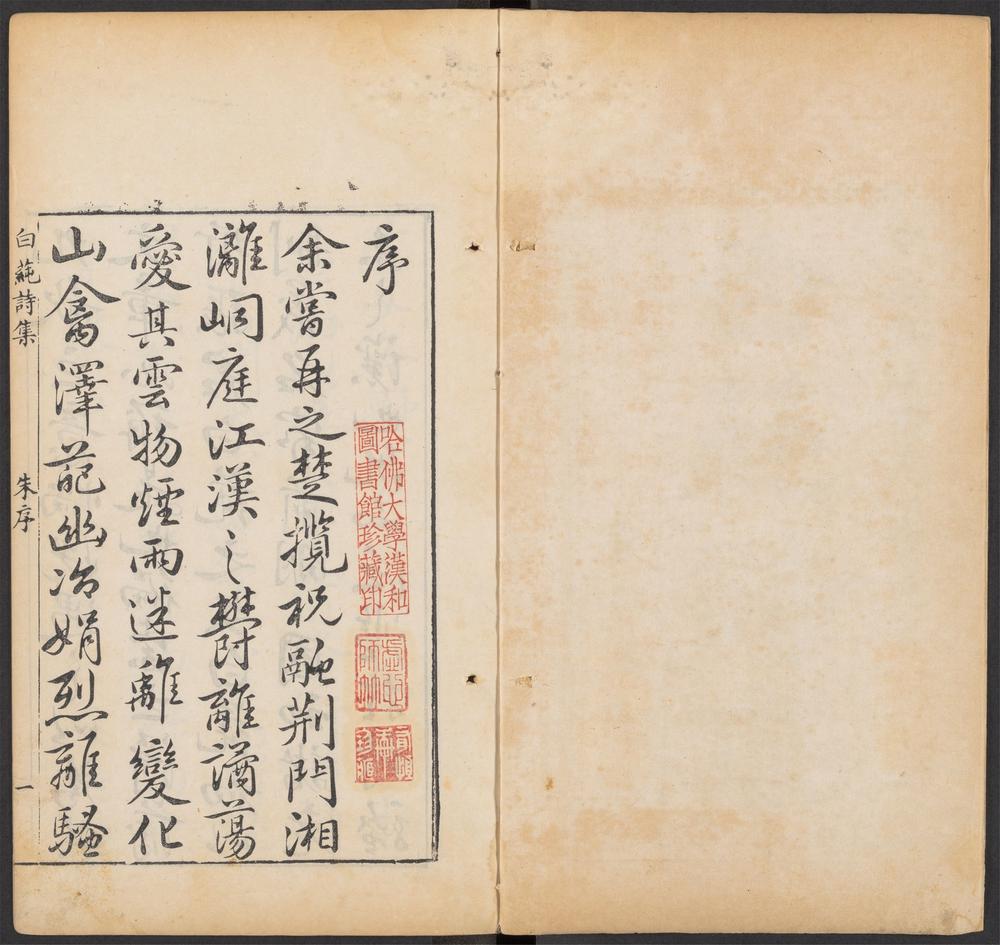 序
余嘗再之楚攬祝融荆門湘
灕峒庭江漢之欝離潏蕩
愛其雲物煙雨迷離變化
山禽澤葩幽冷娟烈離騷
白蒓詩集
朱序
一
哈佛大學漢和
圖書館珍藏印